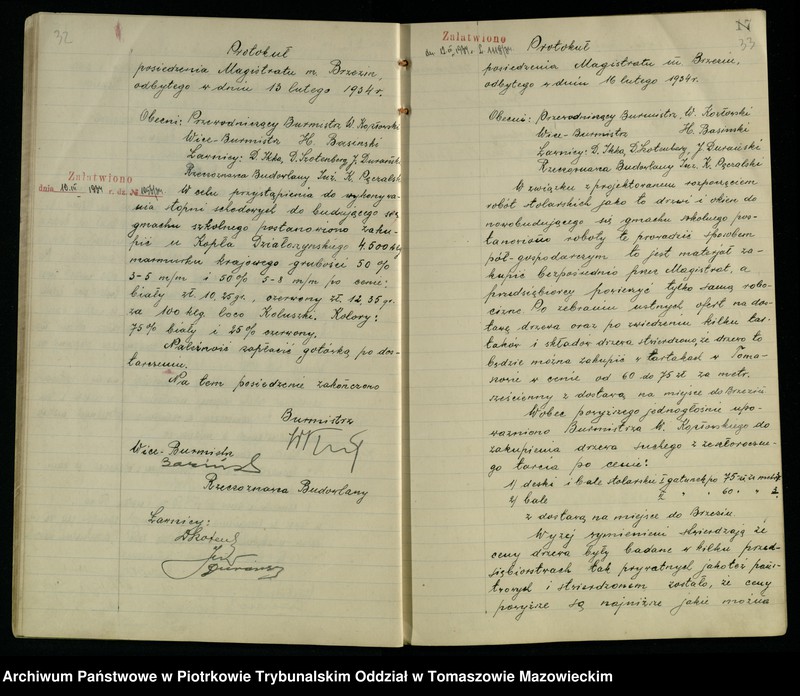 32
Protokuł
posiedzenia Magistratu m. Brzezin,
odbytego w dniu 13 lutego 1934 r.
Obecni: Przewodniczący Burmistrz W. Kozłowski
Wice-Burmistrz H. Basinski
Ławnicy: D. Ikka, D. Szotenberg, J. Durański
Rzeczoznawca Budowlany Inż. K. Pęcralski
Załatwiono
dnia
1934 r. dz. №
W celu przystąpienia do wykonywa-
nia stopni schodowych do budującego się
gmachu szkolnego postanowiono zaku-
pić u Kopla Działoszynskiego 4.500 klg
marmurku krajowego grubości 50%
3-5 m/m i 50% 5-8 m/m po cenie:
biały zł. 10,25 gr., czerwony zł. 12,35 gr.
za 100 klg. loco Koluszki. Kolory:
75% biały i 25% czerwony.
Należność zapłacić gotówką po dos-
tarczeniu.
Na tem posiedzenie zakończono
Burmistrz
Wice-Burmistrz
Rzeczoznawca Budowlany
Ławnicy:
33
Załatwiono
Protokuł
posiedzenia Magistratu m. Brzezin,
odbytego w dniu 16 lutego 1934 r.
Obecni: Przewodniczący Burmistrz, W. Kozłowski
Wice-Burmistrz H. Basinski
Ławnicy: D. Ikka, D. Szotenberg, J. Durański
Rzeczoznawca Budowlany Inż. K. Pęcralski
W związku z projektowanem rozpoczęciem
robót stolarskich jako to drzwi i okien do
nowobudującego się gmachu szkolnego pos-
tanowiono roboty te prowadzić sposobem
pół-gospodarczym to jest materjał za-
kupić bezpośrednio przez Magistrat, a
przedsiębiorcy powierzyć tylko samą robo-
ciznę. Po zebraniu ustnych ofert na dos-
tawę drzewa oraz po zwiedzeniu kilku tar-
taków i składów drzewa stwierdzono, że drzewo to
będzie można zakupić w tartakach w Toma-
szowie w cenie od 60 do 75 zł za metr.
sześcienny z dostawą na miejsce do Brzezin
Wobec powyższego jednogłośnie upo-
ważniono Burmistrza W. Kozłowskiego do
zakupienia drzewa suchego z zeszłoroczne-
go tarcia po cenie:
1) deski i bale stolarskie I gatunek po 75 zł za metr
2) bale II " " 60 " " 3.
z dostawą na miejsce do Brzezin.
Wyżej wymienieni stwierdzają że
ceny drzewa były badane w kilku przed-
siębiorstwach tak prywatnych jakoteż pańs-
twowych i stwierdzonem zostało, że ceny
powyższe są najniższe jakie można
Archiwum Państwowe w Piotrkowie Trybunalskim Oddział w Tomaszowie Mazowieckim